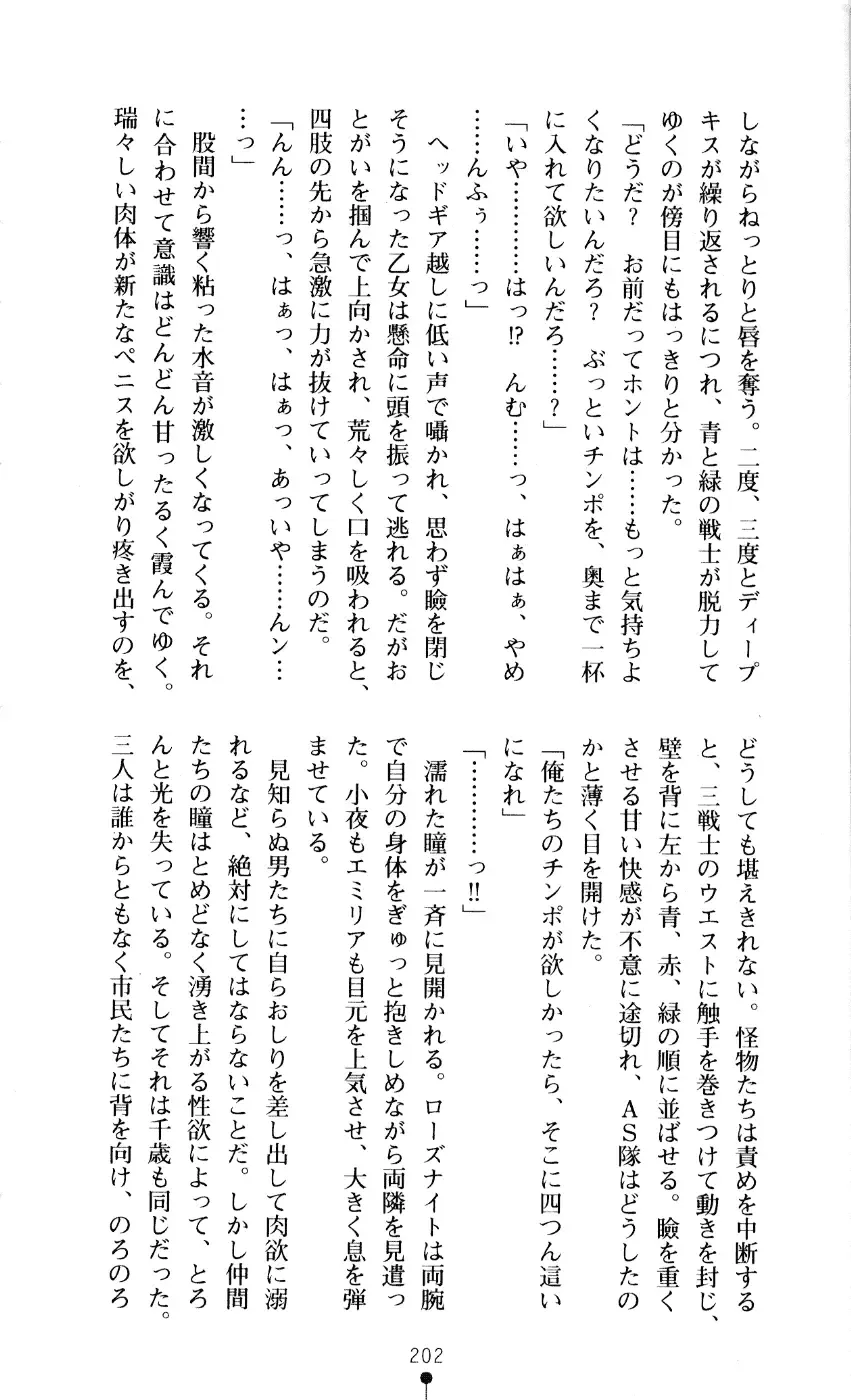 しながらねっとりと唇を奪う。二度、三度とディープ
キスが繰り返されるにつれ、青と緑の戦士が脱力して
ゆくのが傍目にもはっきりと分かった。
「どうだ？　お前だってホントは……もっと気持ちよ
くなりたいんだろ？　ぶっといチンポを、奥まで一杯
に入れて欲しいんだろ……？」
「いや…………はっ!?　んむ……っ、はぁはぁ、やめ
……んふぅ……っ」
　ヘッドギア越しに低い声で囁かれ、思わず瞼を閉じ
そうになった乙女は懸命に頭を振って逃れる。だがお
とがいを掴んで上向かされ、荒々しく口を吸われると、
四肢の先から急激に力が抜けていってしまうのだ。
「んん……っ、はぁっ、はぁっ、あっいや……んン…
…っ」
　股間から響く粘った水音が激しくなってくる。それ
に合わせて意識はどんどん甘ったるく霞んでゆく。
瑞々しい肉体が新たなペニスを欲しがり疼き出すのを、
どうしても堪えきれない。怪物たちは責めを中断する
と、三戦士のウエストに触手を巻きつけて動きを封じ、
壁を背に左から青、赤、緑の順に並ばせる。瞼を重く
させる甘い快感が不意に途切れ、ＡＳ隊はどうしたの
かと薄く目を開けた。
「俺たちのチンポが欲しかったら、そこに四つん這い
になれ」
「…………っ!!」
　濡れた瞳が一斉に見開かれる。ローズナイトは両腕
で自分の身体をぎゅっと抱きしめながら両隣を見遣っ
た。小夜もエミリアも目元を上気させ、大きく息を弾
ませている。
　見知らぬ男たちに自らおしりを差し出して肉欲に溺
れるなど、絶対にしてはならないことだ。しかし仲間
たちの瞳はとめどなく湧き上がる性欲によって、とろ
んと光を失っている。そしてそれは千歳も同じだった。
三人は誰からともなく市民たちに背を向け、のろのろ
202